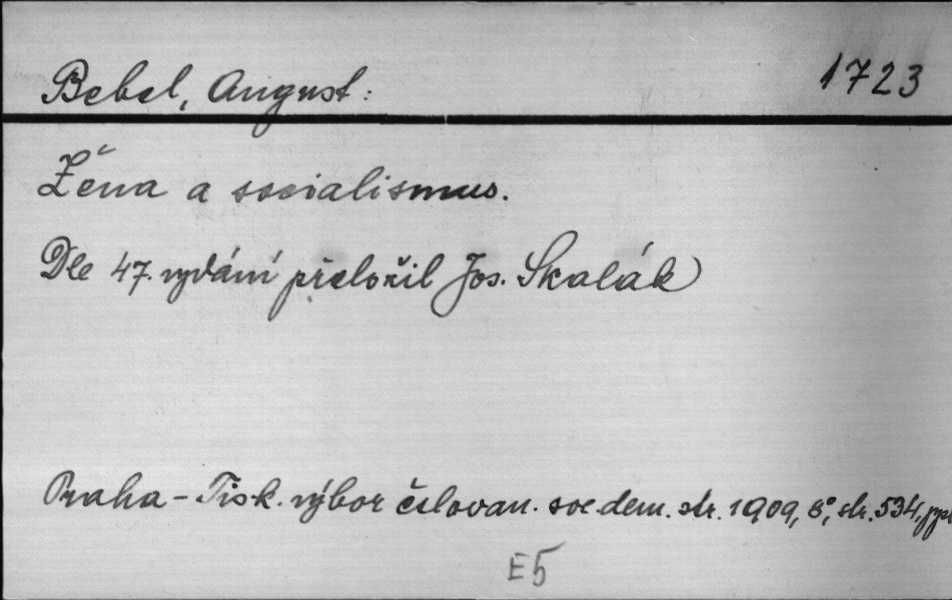 Bebel, August: 1723
Žena a socialismus.
Dle 47. vydání přeložil Jos. Skalák
Praha - Tisk. výbor čslovan. soc. dem. str. 1909, 8°, str. 534,
E5